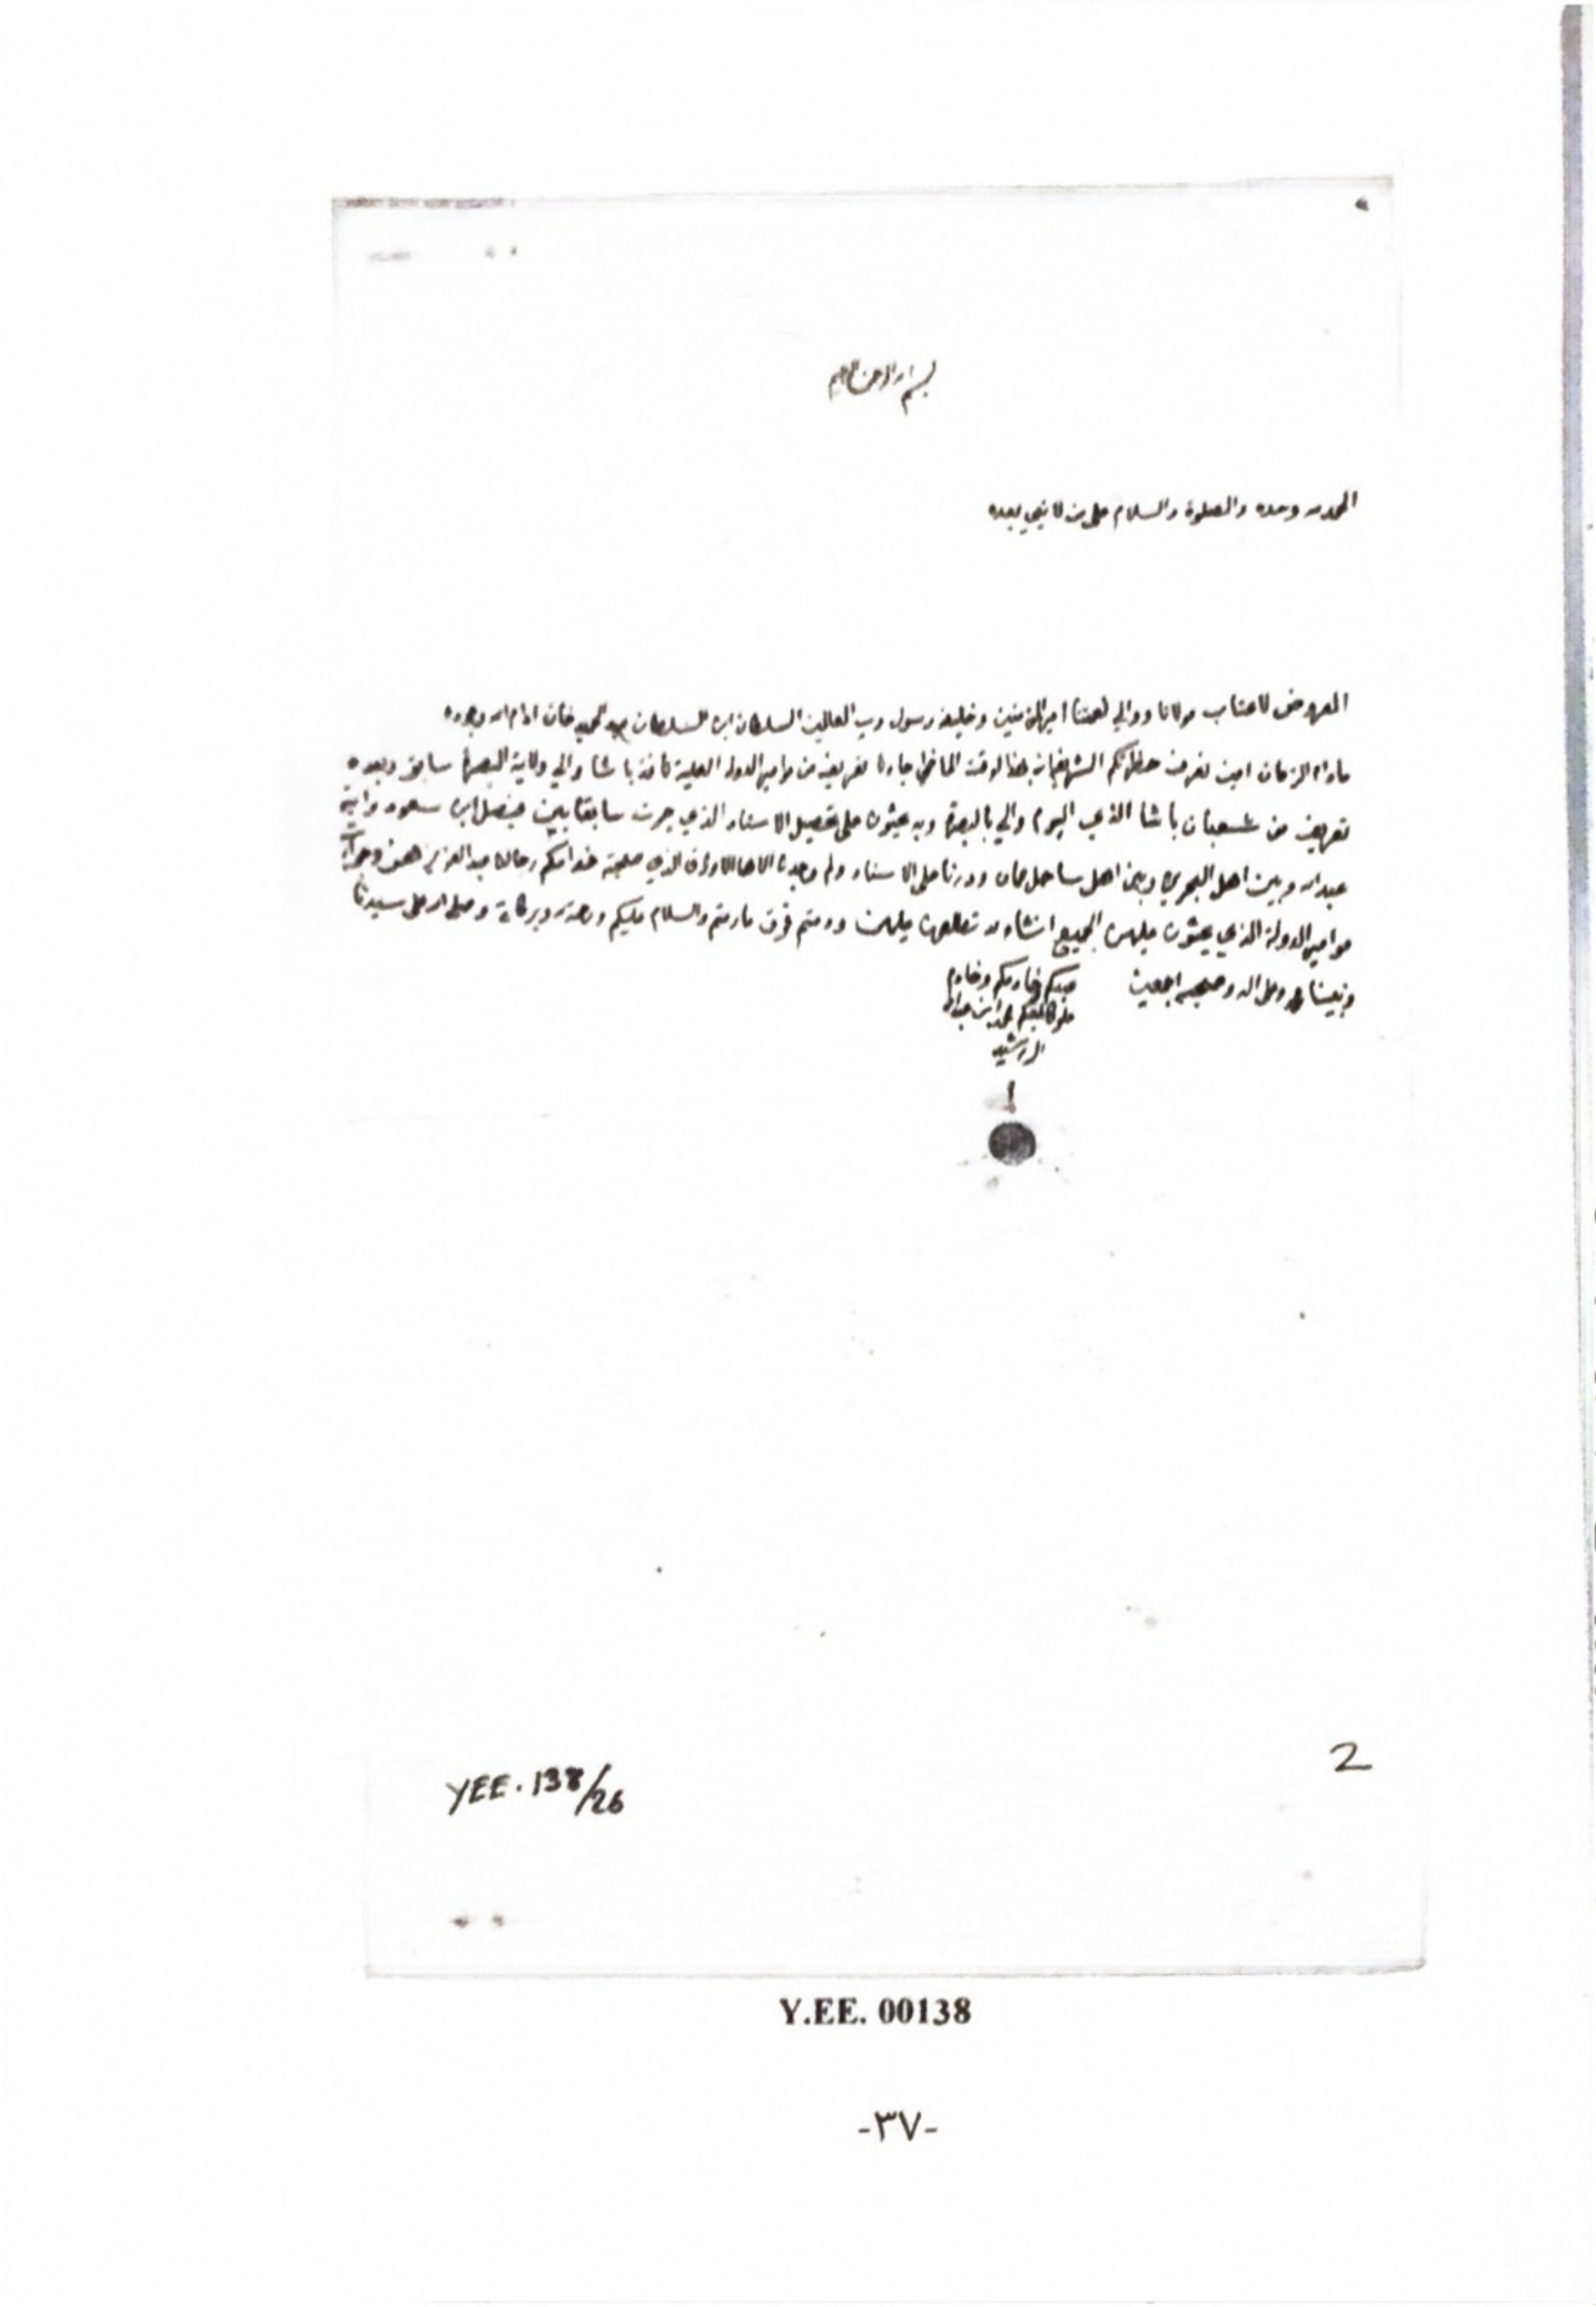 بسم الله الرحمن الرحيم
الحمد لله وحده والصلوة والسلام على من لا نبي بعده
المعروض لاعتاب مولانا ووالي نعمتنا امير المؤمنين وخليفة رسول رب العالمين السلطان ابن السلطان عبد الحميد خان ادام الله وجوده
مادام الزمان امين نعرف حضرتكم الشريفة بهذا الوقت جاءنا تعريف من الدولة العلية باشا والي ولاية البصرة سابق وبعده
تعريف من شعبان باشا الذي اليوم والي بالبصرة وبه يحثون على تحصيل الاسناد الذي جرت سابقا بين فيصل ابن سعود وابنه
عبد الله وبين اهل البحرين وبين اهل ساحل عمان ودورنا على الاسناد ولم وجدنا الا هالاوراق الذي صحبة خدامكم
الدولة الذي يحثون عليهن الجميع انشاء الله تطلعون عليهن ودمتم فوق ما رمتم والسلام عليكم ورحمة الله وبركاته وصلى الله على سيدنا
ونبينا محمد وعلى اله وصحبه اجمعين
عبدكم خادمكم وخادم
محمد ابن عبد الله
الرشيد
YEE. 138/26
2
Y.EE. 00138
-٣٧-